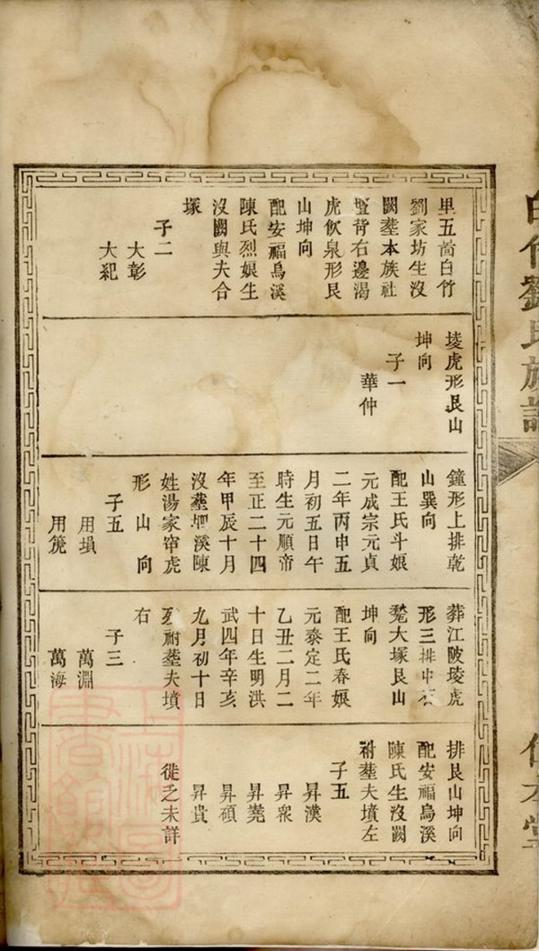 里五啚白竹
劉家坊生沒
闕塟本族社
壂背右邊渴
虎飲泉形艮
山坤向
配安福鳥溪
陳氏烈娘生
沒闕與夫合
塚
子二
大彰
大紀
堎虎形艮山
坤向
子一
華仲
鐘形上排乾
山巽向
配王氏斗娘
元成宗元貞
二年丙申五
月初五日午
時生元順帝
至正二十四
年甲辰十月
沒塟壩溪陳
姓湯家帘虎
形山向
子五
用塤
用箎
葬江陂堎虎
形三排中右
大塚艮山
坤向
配王氏春娘
元泰定二年
乙丑二月二
十日生明洪
武四年辛亥
九月初十日
歿祔塟夫墳
右
子三
萬淵
萬海
排艮山坤向
配安福鳥溪
陳氏生沒闕
祔塟夫墳左
子五
昇漢
昇衆
昇堯
昇碩
昇貴
徙乏未詳
白竹劉氏族譜